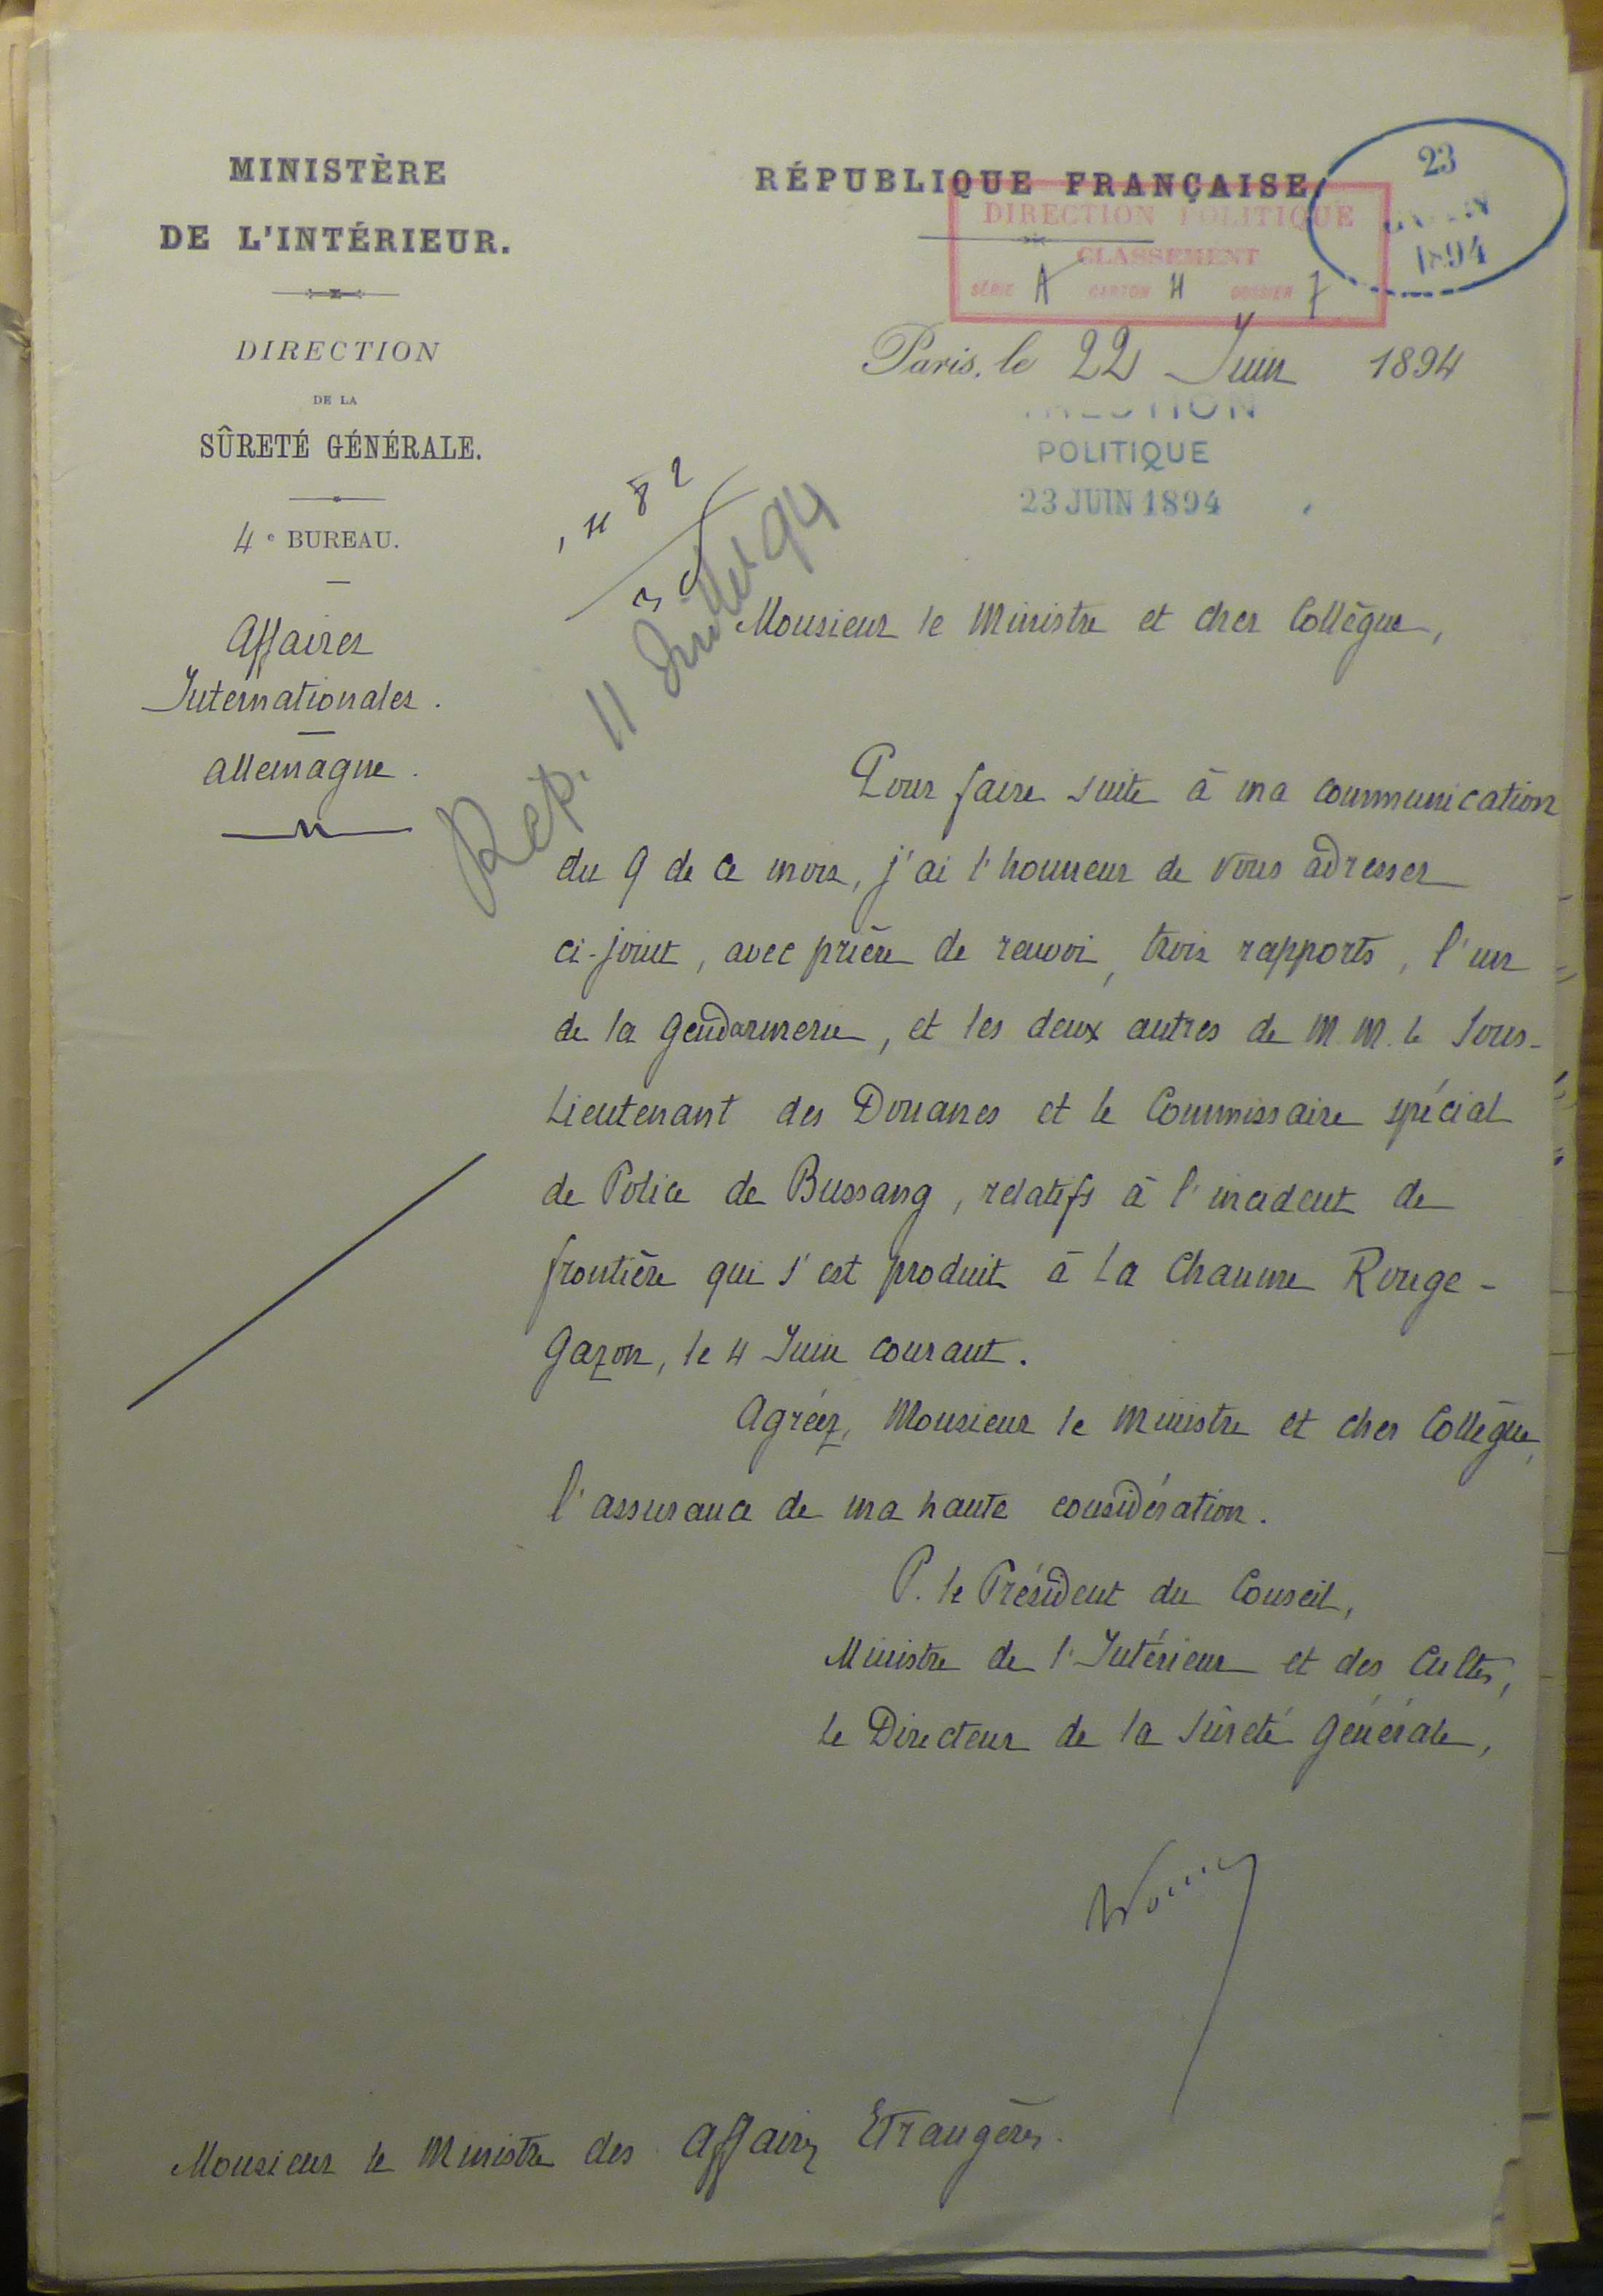 MINISTÈRE
DE L'INTÉRIEUR.
DIRECTION
DE LA
SÛRETÉ GÉNÉRALE.
4e BUREAU.
Affaires
Internationales.
Allemagne.
RÉPUBLIQUE FRANÇAISE
DIRECTION POLITIQUE
CLASSEMENT
SÉRIE A CARTON 4 DOSSIER 7
23
1894
Paris, le 22 Juin 1894
POLITIQUE
23 JUIN 1894
Rép. 11 Juillet 94
Monsieur le Ministre et cher Collègue,
Pour faire suite à ma communication
du 9 de ce mois, j'ai l'honneur de vous adresser
ci-joint, avec prière de renvoi, trois rapports, l'un
de la gendarmerie, et les deux autres de M.M. le Sous-
Lieutenant des Douanes et le Commissaire spécial
de Police de Bussang, relatifs à l'incident de
frontière qui s'est produit à La Chaume Rouge-
Gazon, le 4 Juin courant.
Agréez, Monsieur le Ministre et cher Collègue,
l'assurance de ma haute considération.
P. le Président du Conseil,
Ministre de l'Intérieur et des Cultes,
Le Directeur de la Sûreté Générale,
Monsieur le Ministre des Affaires Etrangères.